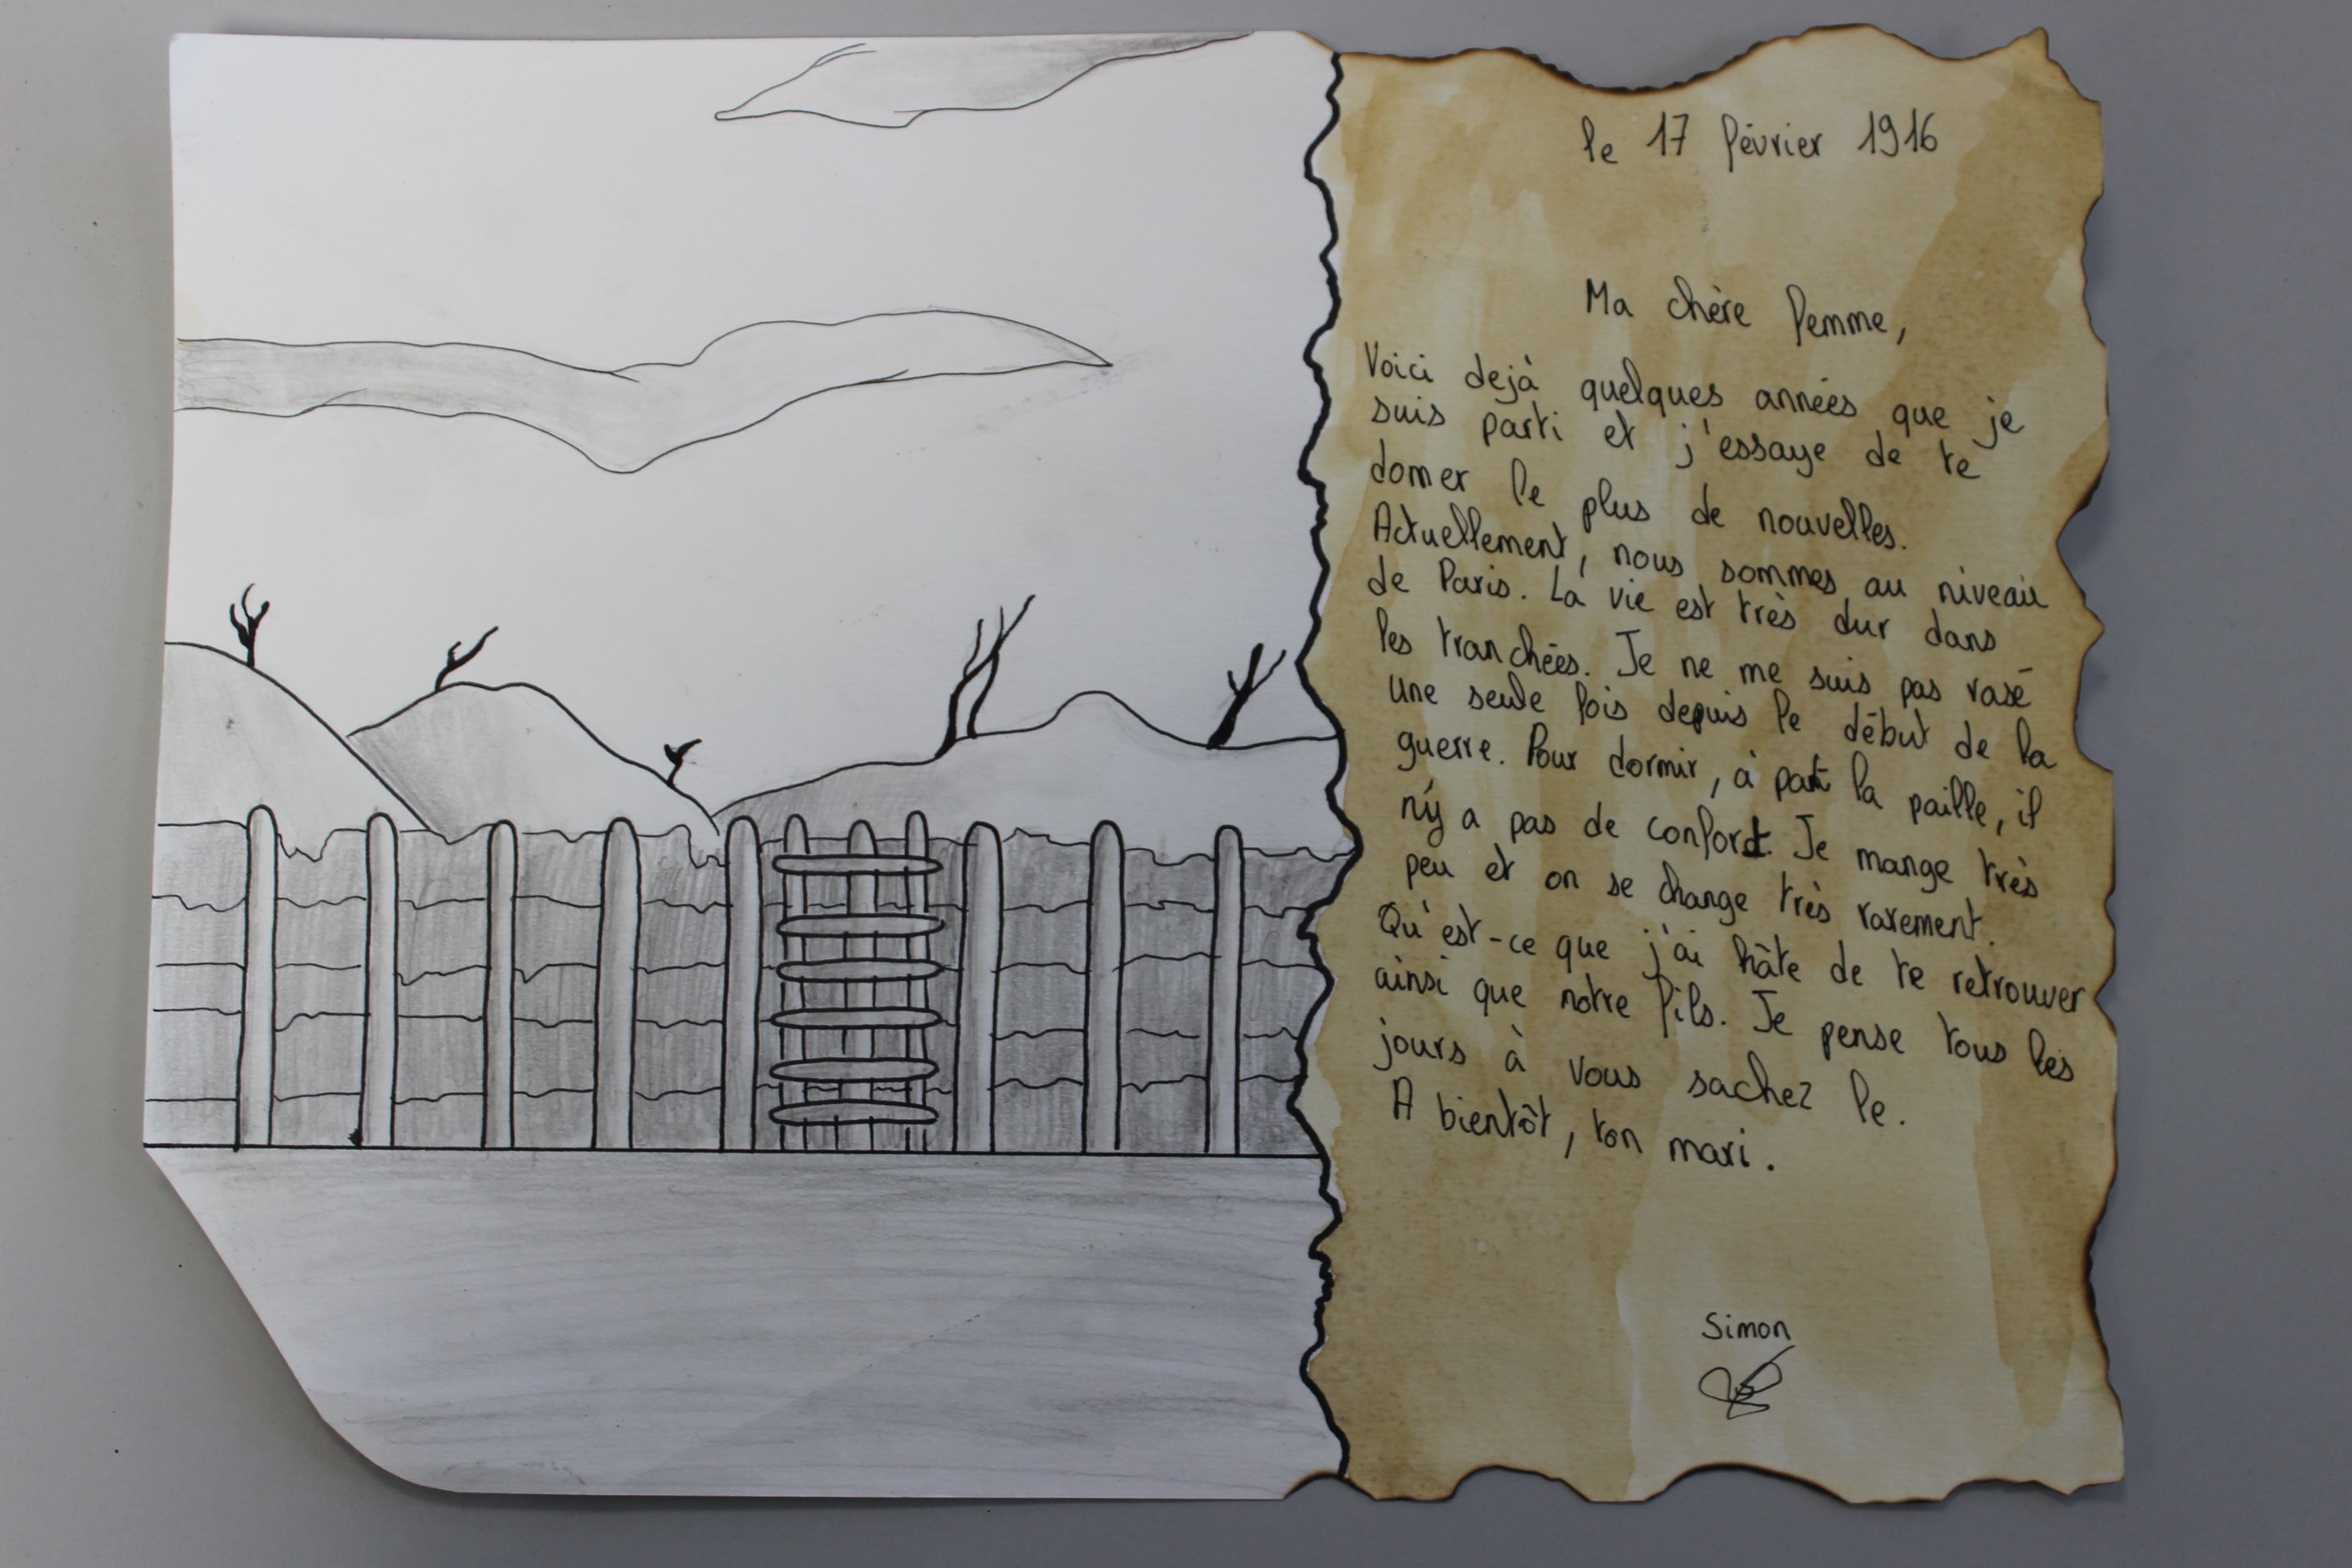 le 17 février 1916
Ma chère femme,
Voici dejà quelques années que je
suis parti et j'essaye de te
donner le plus de nouvelles.
Actuellement, nous sommes au niveau
de Paris. La vie est très dur dans
les tranchées. Je ne me suis pas rasé
une seule fois depuis le début de la
guerre. Pour dormir, à part la paille, il
n'y a pas de confort. Je mange très
peu et on se change très rarement.
Qu'est-ce que j'ai hâte de te retrouver
ainsi que notre fils. Je pense tous les
jours à vous sachez le.
A bientôt, ton mari.
Simon